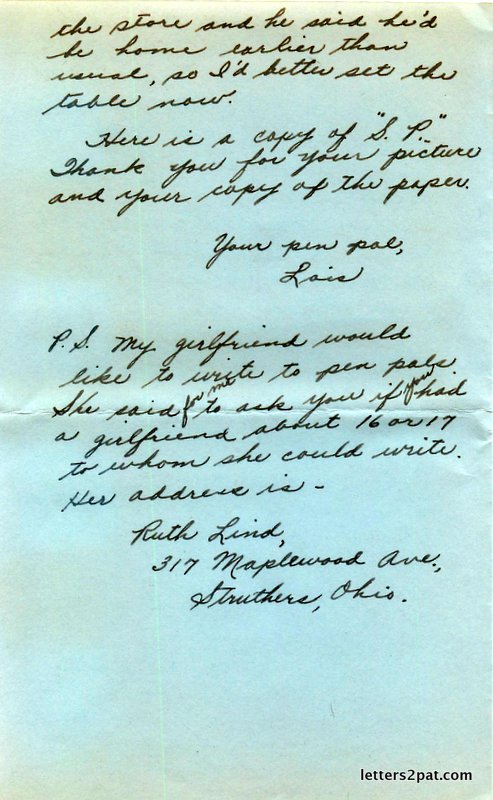 the store and he said he'd
be home earlier than
usual, so I'd better set the
table now.
Here is a copy of "S. P."
Thank you for your picture
and your copy of the paper.
Your pen pal,
Lois
P.S. My girlfriend would
like to write to pen pals.
She said for me to ask you if you had
a girlfriend about 16 or 17
to whom she could write.
Her address is -
Ruth Lind,
317 Maplewood Ave.,
Struthers, Ohio.
letters2pat.com